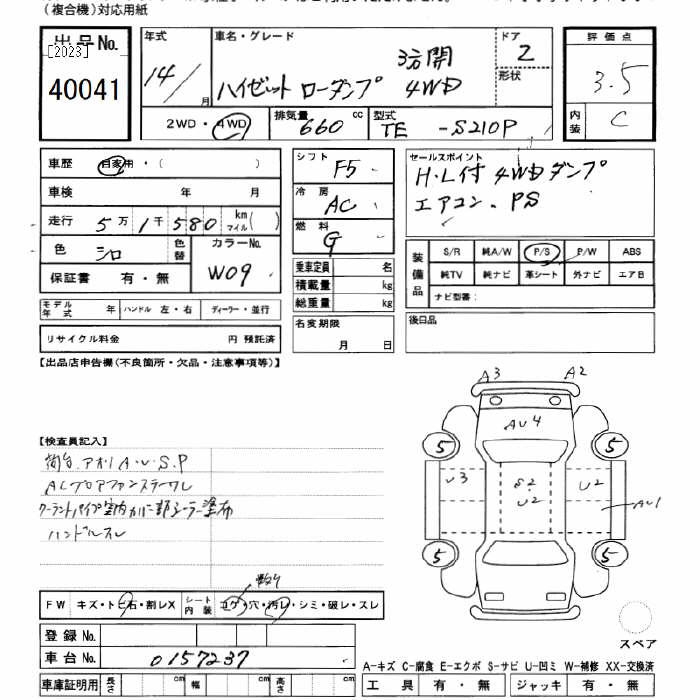 (複合機)対応用紙
出品No.
[2023]
40041
年式
14/
月
車名・グレード
3方開
ハイゼット ローダンプ 4WD
ドア
2
形状
評価点
3.5
内装
C
2WD・4WD
排気量
660
cc
型式
TE -S210P
車歴 自家用・( )
車検 年 月
走行 5万1千580 km マイル( )
色 シロ
色替
カラーNo.
W09
保証書 有・無
シフト
F5
冷房
AC
燃料
G
セールスポイント
H・L付 4WDダンプ
エアコン・PS
装備品
S/R 純A/W P/S P/W ABS
純TV 純ナビ 革シート 外ナビ エアB
ナビ型番:
乗車定員 名
積載量 kg
総重量 kg
モデル年式 年 ハンドル 左・右 ディーラー・並行
リサイクル料金 円 預託済
名変期限
月 日
後日品
【出品店申告欄(不良箇所・欠品・注意事項等)】
A3 A2
AU4
5 5
U3 S2 U2 U2 AU1
5 5
スペア
【検査員記入】
荷台、アオリ A・U・S・P
ハンドルスレ
FW キズ・トビ石・割レX
シート内装 コゲ・穴・汚レ・シミ・破レ・スレ
登録No.
車台No. 0157237
車庫証明用 長さ cm 幅 cm 高さ cm
A-キズ C-腐食 E-エクボ S-サビ U-凹ミ W-補修 XX-交換済
工具 有・無 ジャッキ 有・無